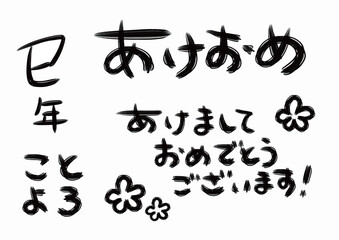 巳
年
こと
よろ
あけおめ
あけまして
おめでとう
ございます!